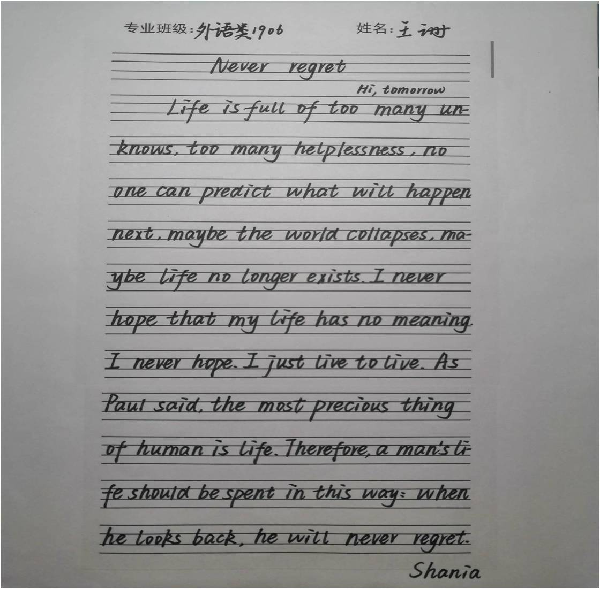 专业班级:外语类1906 姓名:王珊
Never regret
Hi, tomorrow
Life is full of too many un-
knows, too many helplessness, no
one can predict what will happen
next, maybe the world collapses, ma-
ybe life no longer exists. I never
hope that my life has no meaning.
I never hope. I just live to live. As
Paul said, the most precious thing
of human is life. Therefore, a man's li-
fe should be spent in this way: when
he looks back, he will never regret.
Shania